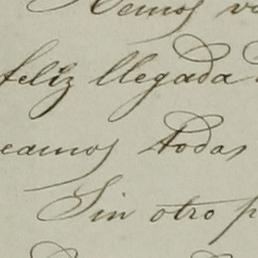 Hemos v
feliz llegada
eamos todas
Sin otro p